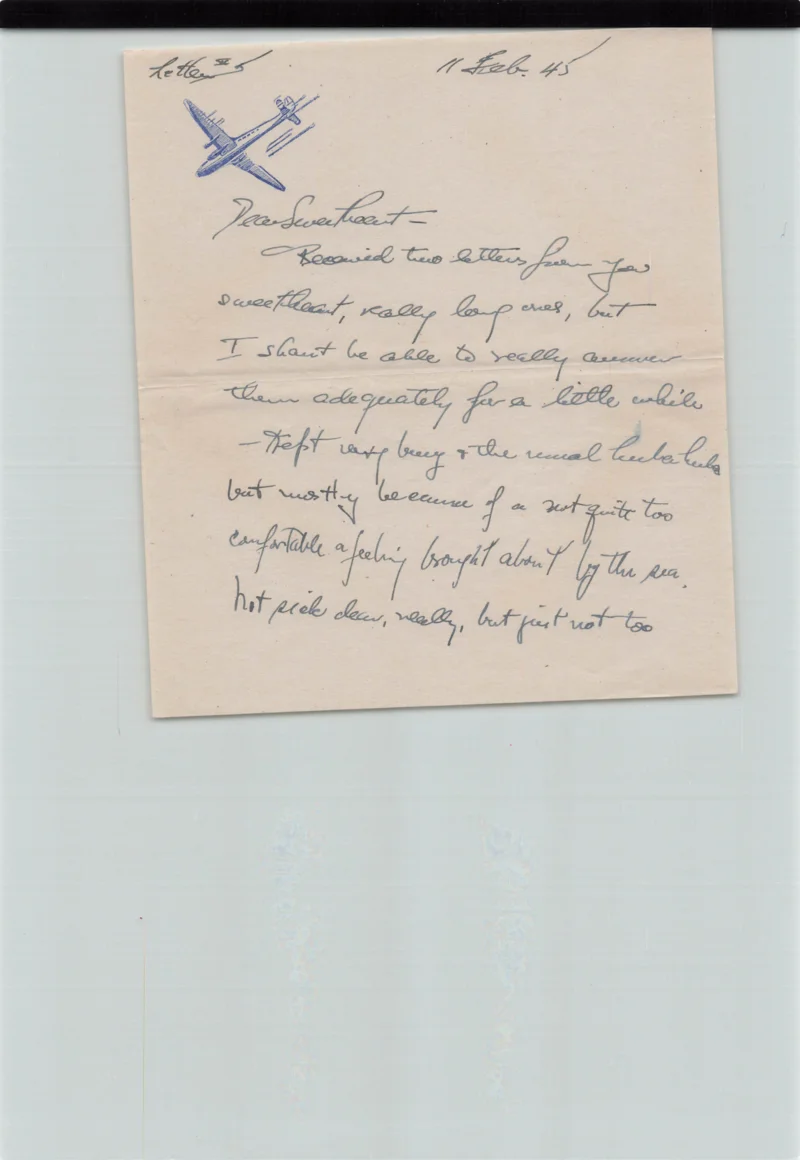 Letter # 5
11 Feb. 45
Dear Sweetheart —
Received two letters from you
sweetheart, really long ones, but
I shant be able to really answer
them adequately for a little while
— Kept very busy & the usual huba huba
but mostly because of a not quite too
comfortable a feeling brought about by the sea.
Not sick dear, really, but just not too